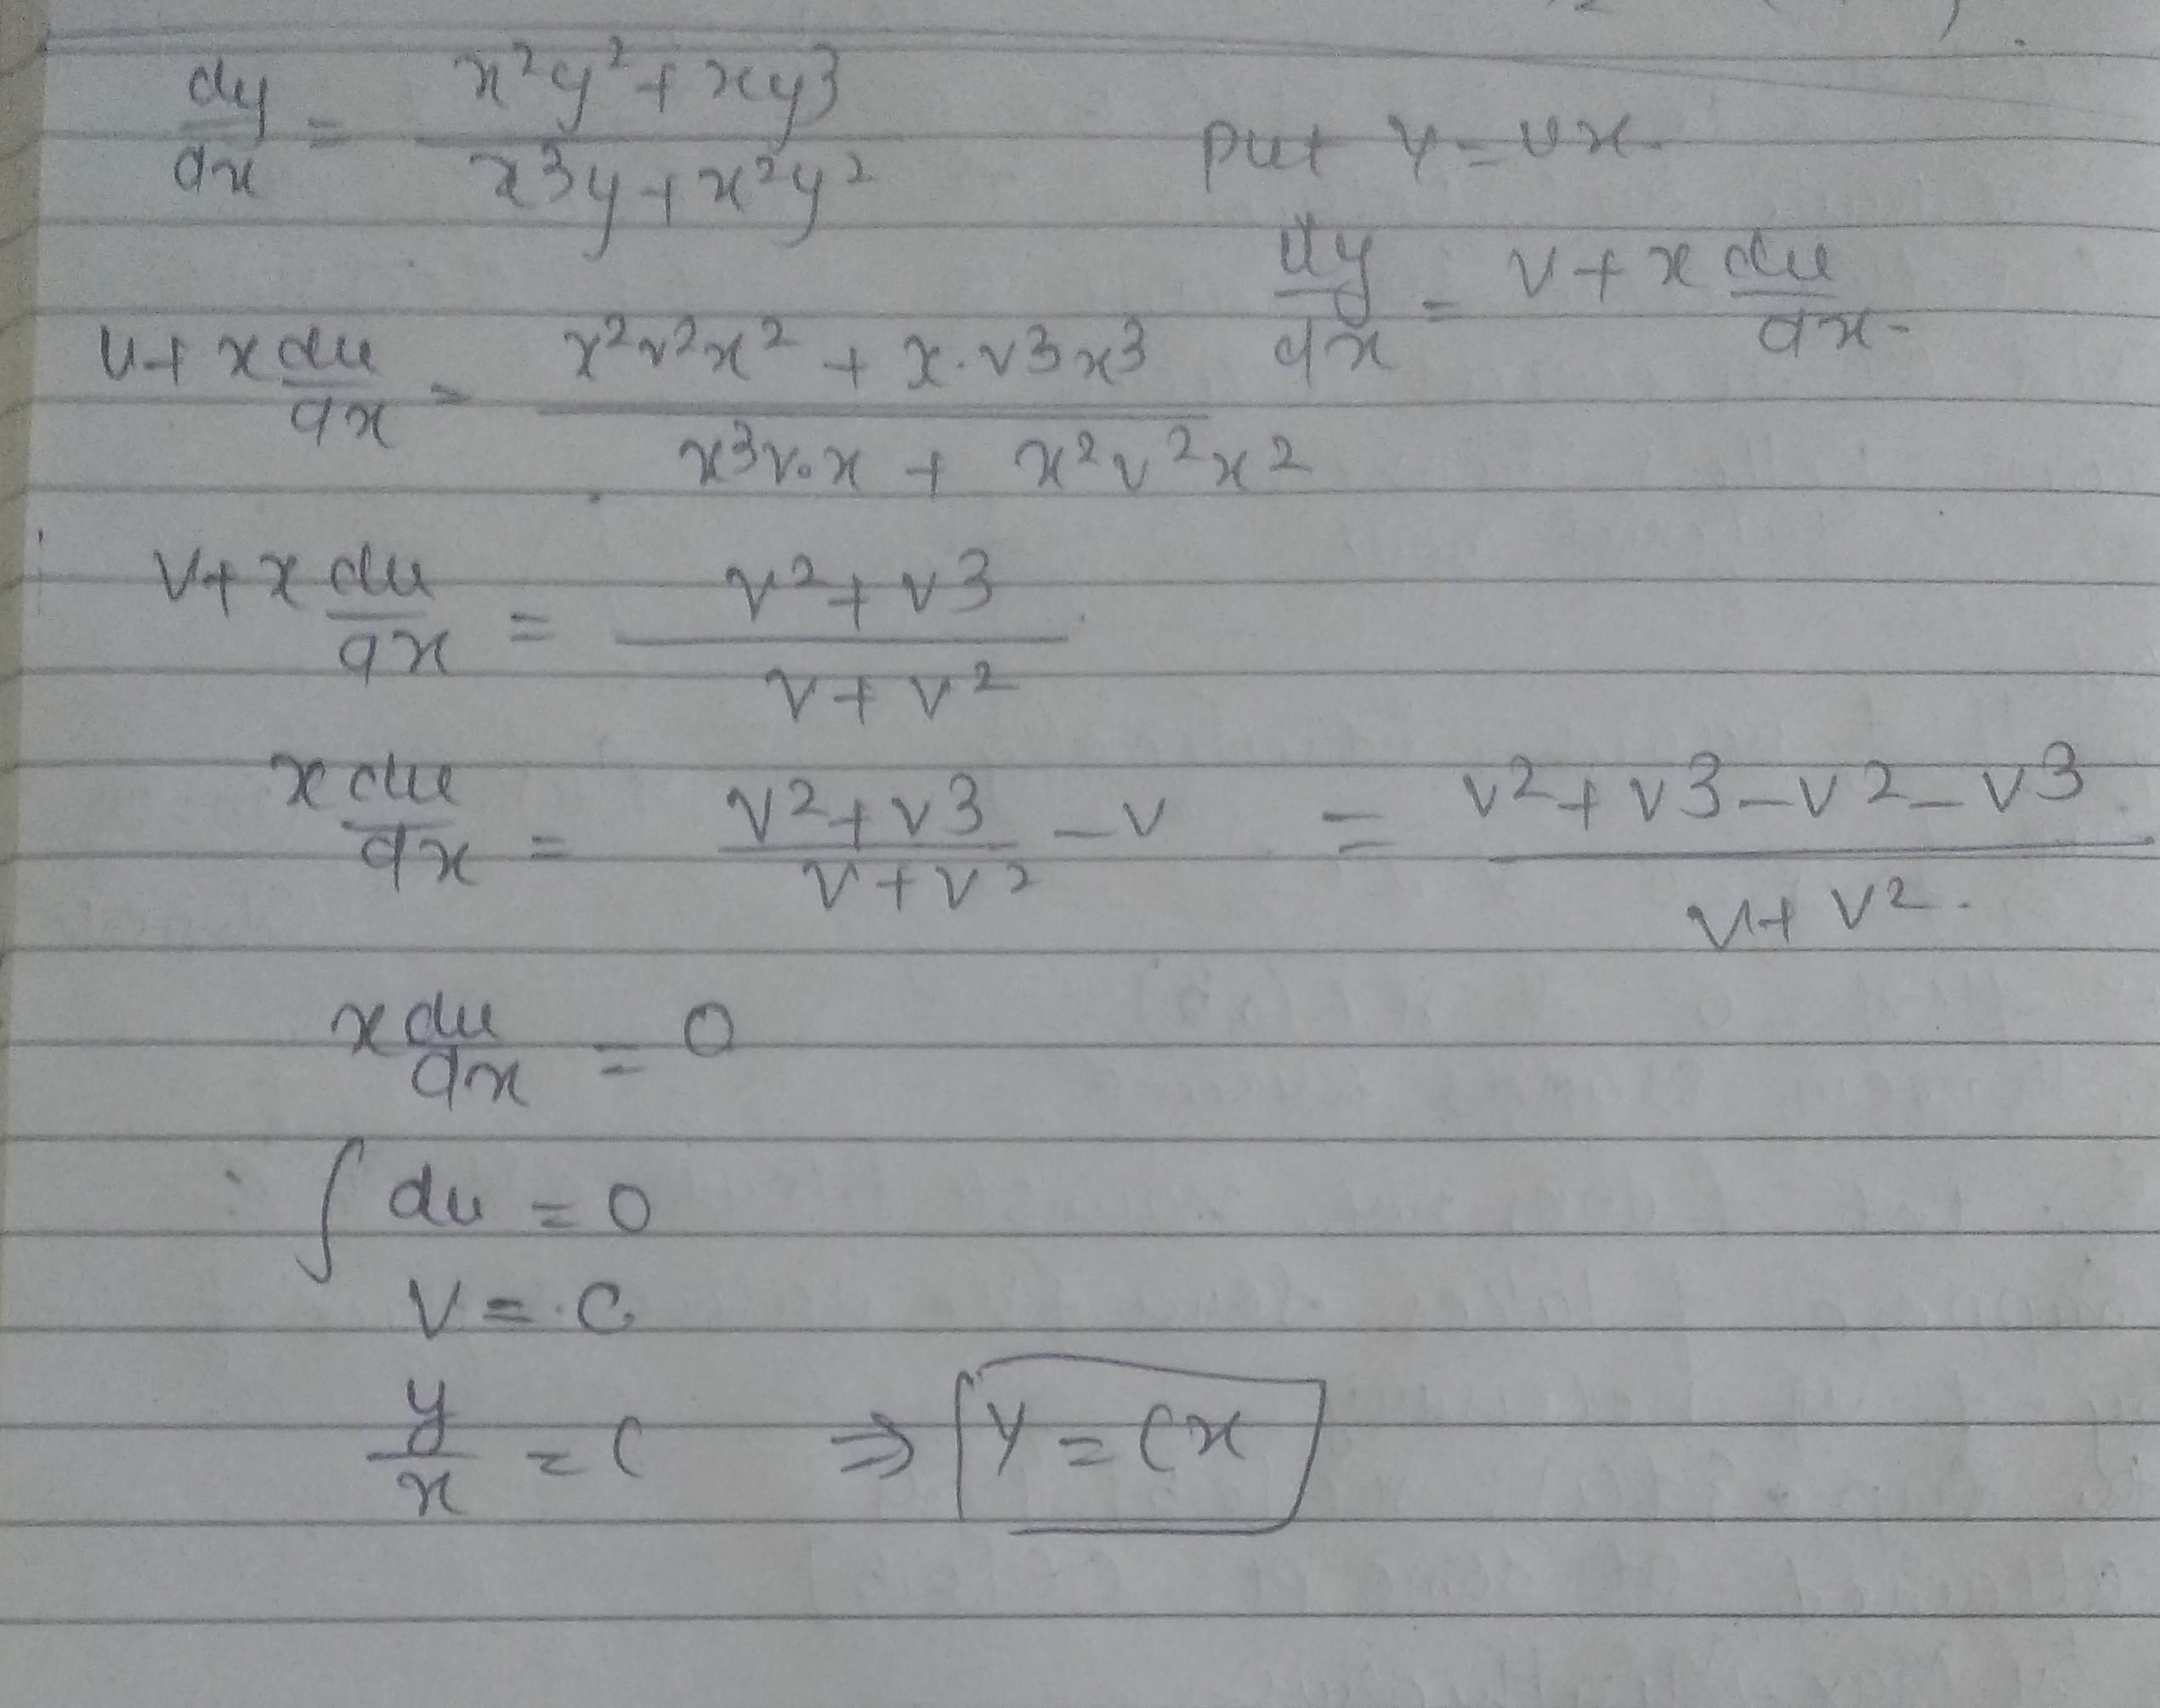 dy/dx = (x²y² + xy³)/(x³y + x²y²)
put y = vx.
dy/dx = v + x dv/dx.
v + x dv/dx = (x²v²x² + x.v³x³)/(x³v.x + x²v²x²)
v + x dv/dx = (v² + v³)/(v + v²)
x dv/dx = (v² + v³)/(v + v²) - v = (v² + v³ - v² - v³)/(v + v²).
x dv/dx = 0
∫ dv = 0
v = c
y/x = c ⇒ y = cx